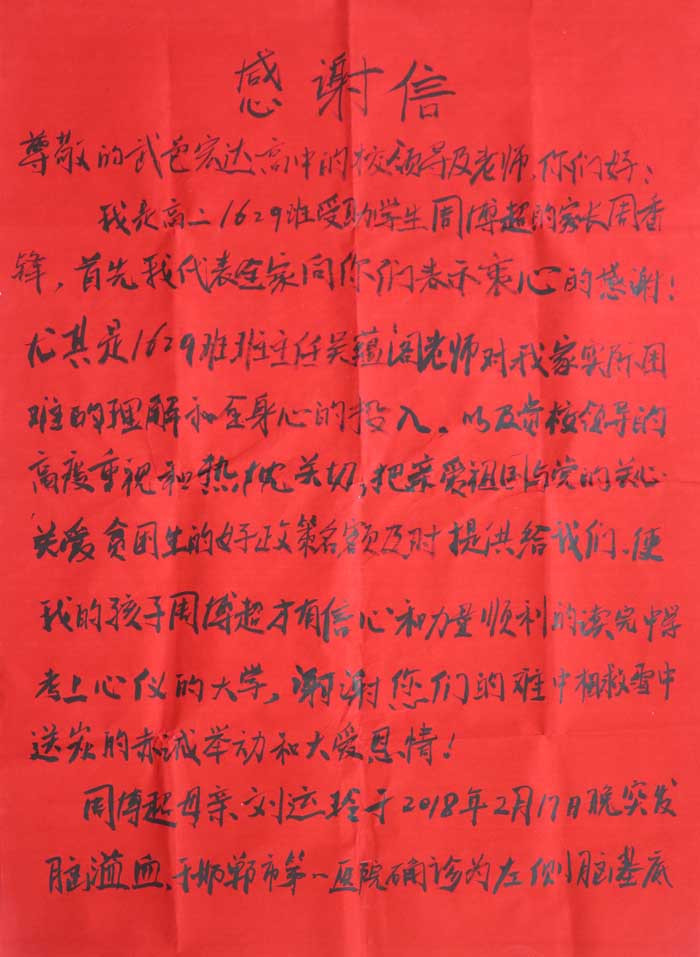 感谢信
尊敬的武邑宏达高中的校领导及老师，你们好：
我是高二1629班受助学生周博超的家长周香
锋，首先我代表全家向你们表示衷心的感谢！
尤其是1629班班主任吴蕴阁老师对我家实际困
难的理解和全身心的投入、以及贵校领导的
高度重视和热忱关切，把亲爱祖国与党的关心
关爱贫困生的好政策名额及时提供给我们、使
我的孩子周博超才有信心和力量顺利的读完中学
考上心仪的大学，谢谢您们的难中相救雪中
送炭的赤诚举动和大爱恩情！
周博超母亲刘运玲于2018年2月17日晚突发
脑溢血于邯郸市第一医院确诊为左侧脑基底